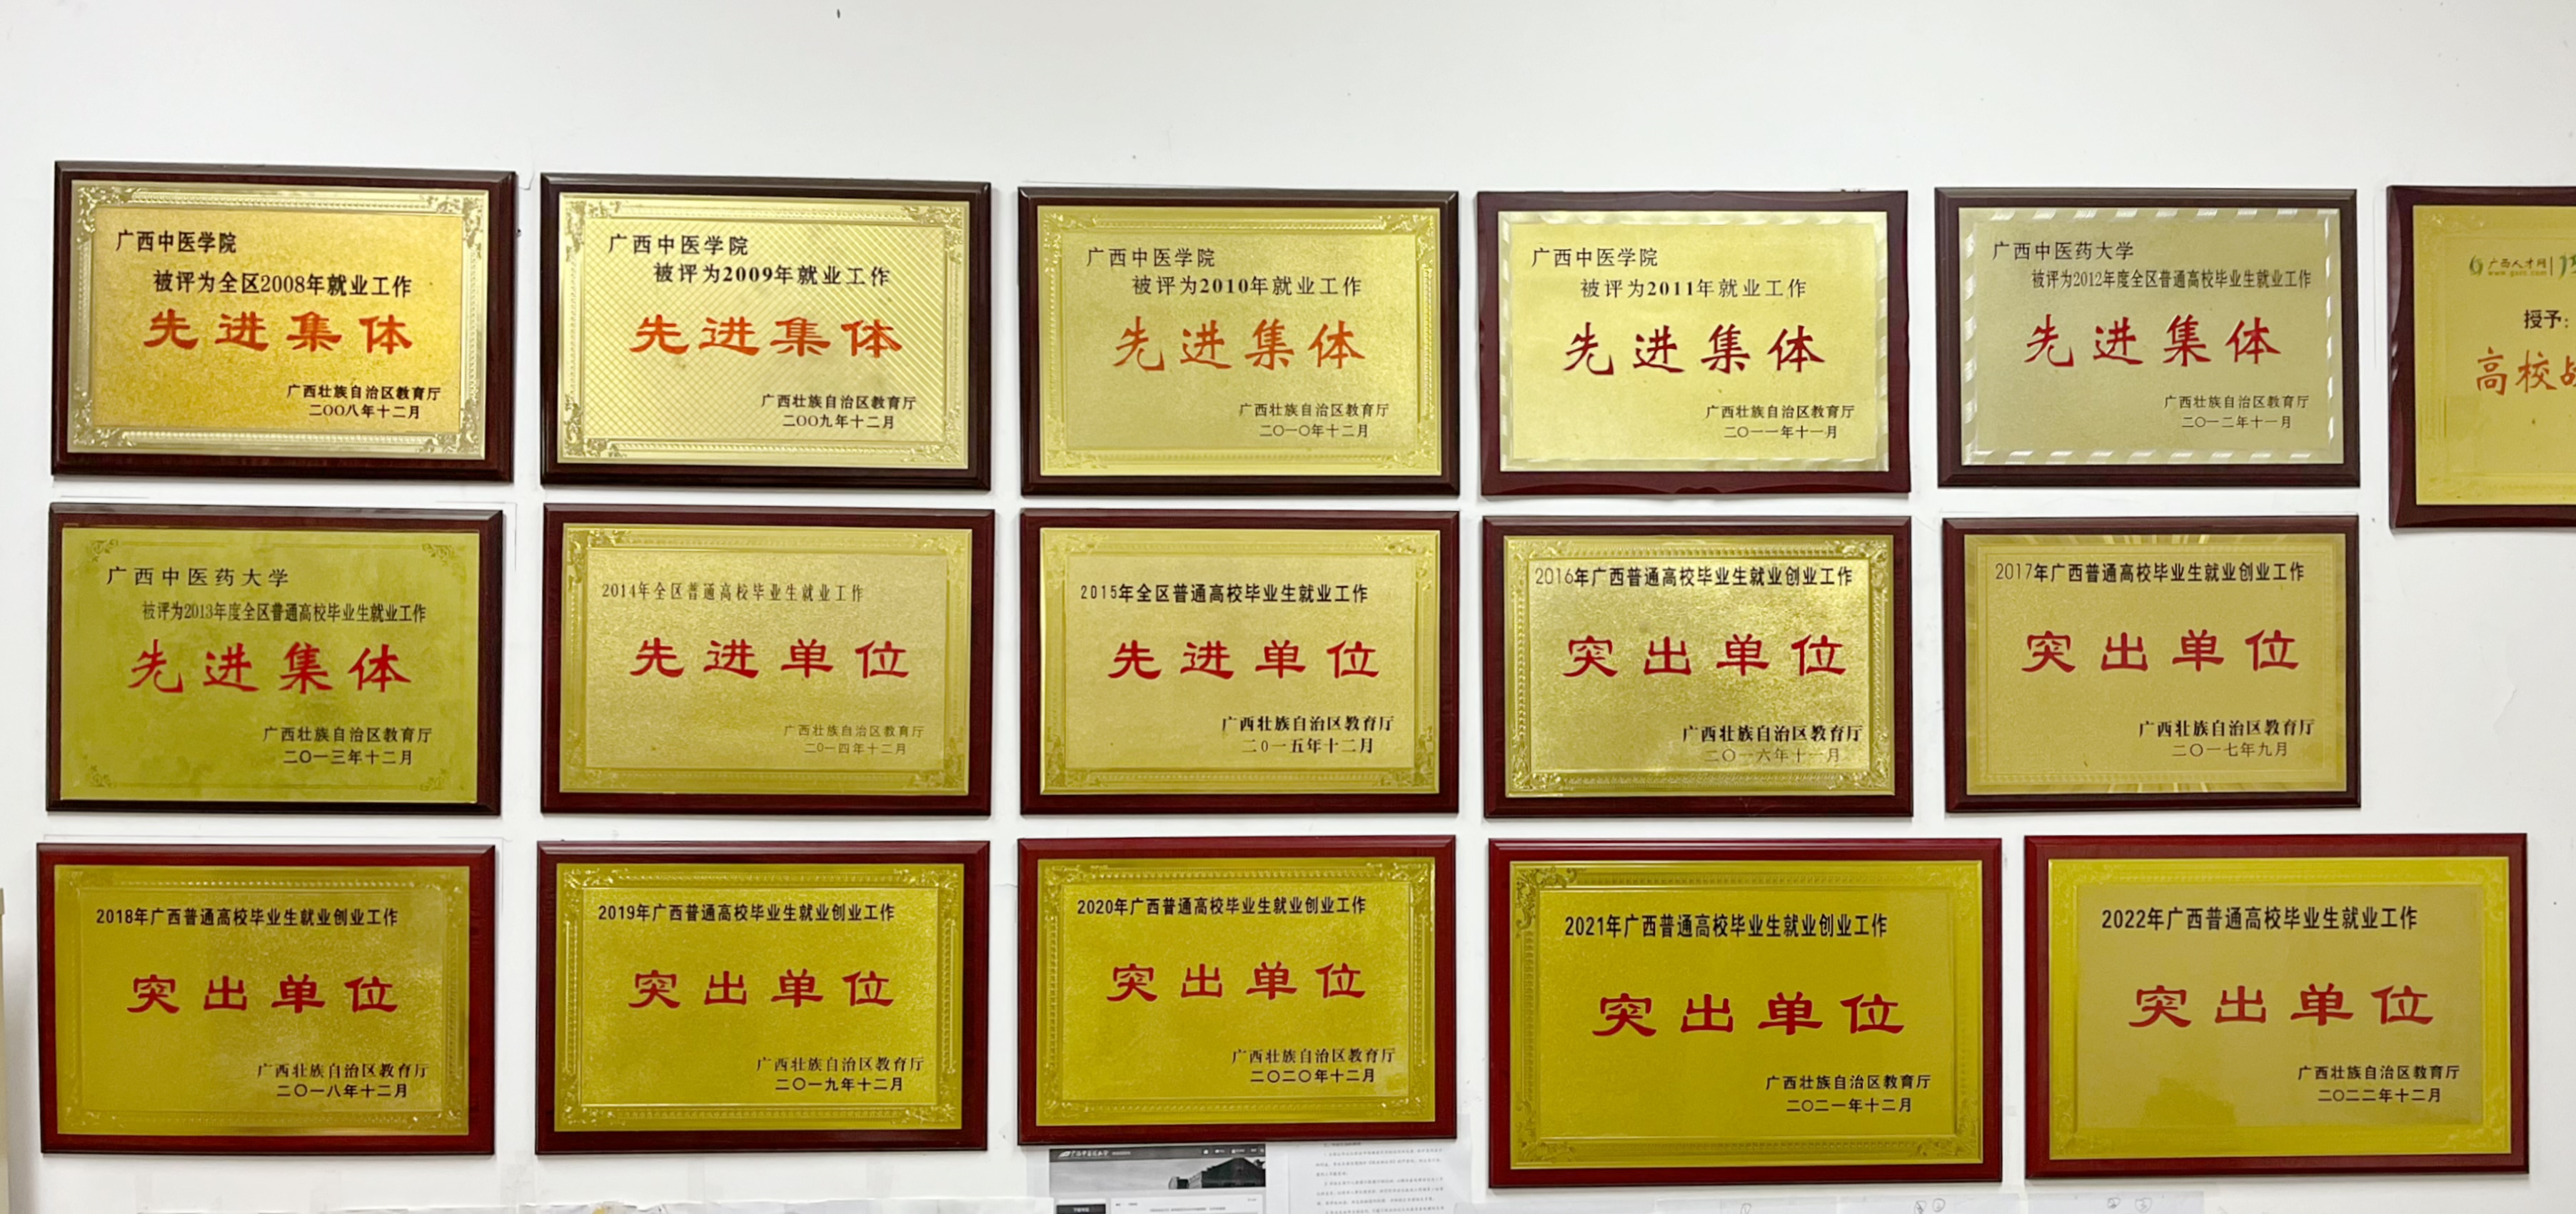 广西中医学院
被评为全区2008年就业工作
先进集体
广西壮族自治区教育厅
二〇〇八年十二月
广西中医学院
被评为2009年就业工作
先进集体
广西壮族自治区教育厅
二〇〇九年十二月
广西中医学院
被评为2010年就业工作
先进集体
广西壮族自治区教育厅
二〇一〇年十二月
广西中医学院
被评为2011年就业工作
先进集体
广西壮族自治区教育厅
二〇一一年十一月
广西中医药大学
被评为2012年度全区普通高校毕业生就业工作
先进集体
广西壮族自治区教育厅
二〇一二年十一月
广西人才网
授予:
高校
广西中医药大学
被评为2013年度全区普通高校毕业生就业工作
先进集体
广西壮族自治区教育厅
二〇一三年十二月
2014年全区普通高校毕业生就业工作
先进单位
广西壮族自治区教育厅
二〇一四年十二月
2015年全区普通高校毕业生就业工作
先进单位
广西壮族自治区教育厅
二〇一五年十二月
2016年广西普通高校毕业生就业创业工作
突出单位
广西壮族自治区教育厅
二〇一六年十一月
2017年广西普通高校毕业生就业创业工作
突出单位
广西壮族自治区教育厅
二〇一七年九月
2018年广西普通高校毕业生就业创业工作
突出单位
广西壮族自治区教育厅
二〇一八年十二月
2019年广西普通高校毕业生就业创业工作
突出单位
广西壮族自治区教育厅
二〇一九年十二月
2020年广西普通高校毕业生就业创业工作
突出单位
广西壮族自治区教育厅
二〇二〇年十二月
2021年广西普通高校毕业生就业创业工作
突出单位
广西壮族自治区教育厅
二〇二一年十二月
2022年广西普通高校毕业生就业工作
突出单位
广西壮族自治区教育厅
二〇二二年十二月